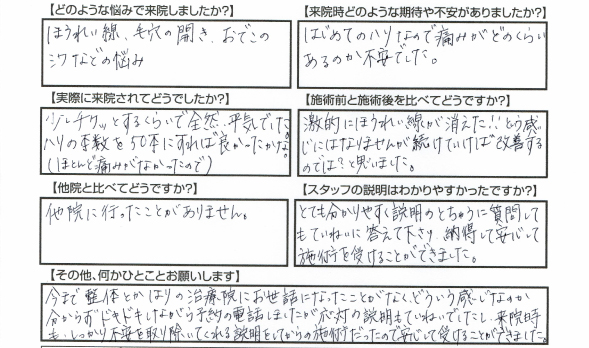 【どのような悩みで来院しましたか?】
ほうれい線、毛穴の開き、おでこの
シワなどの悩み
【来院時どのような期待や不安がありましたか?】
はじめてのハリなので痛みがどのくらい
あるのか不安でした。
【実際に来院されてどうでしたか?】
少しチクッとするくらいで全然平気でした。
ハリの本数を50本にすれば良かったかな。
(ほとんど痛みがなかったので)
【施術前と施術後を比べてどうですか?】
激的にほうれい線が消えた!!という感
じにはなりませんが続けていけば改善する
のでは?と思いました。
【他院と比べてどうですか?】
他院に行ったことがありません。
【スタッフの説明はわかりやすかったですか?】
とても分かりやすく説明のとちゅうに質問して
もていねいに答えて下さり、納得して安心して
施術を受けることができました。
【その他、何かひとことお願いします】
今まで整体とかはりの治療院にお世話になったことがなく、どういう感じなのか
分からずドキドキしながら予約の電話しましたが応対の説明もていねいでしたし、来院時
も、しっかり不安を取り除いてくれる説明をしてからの施術だったので安心して受けることができました。